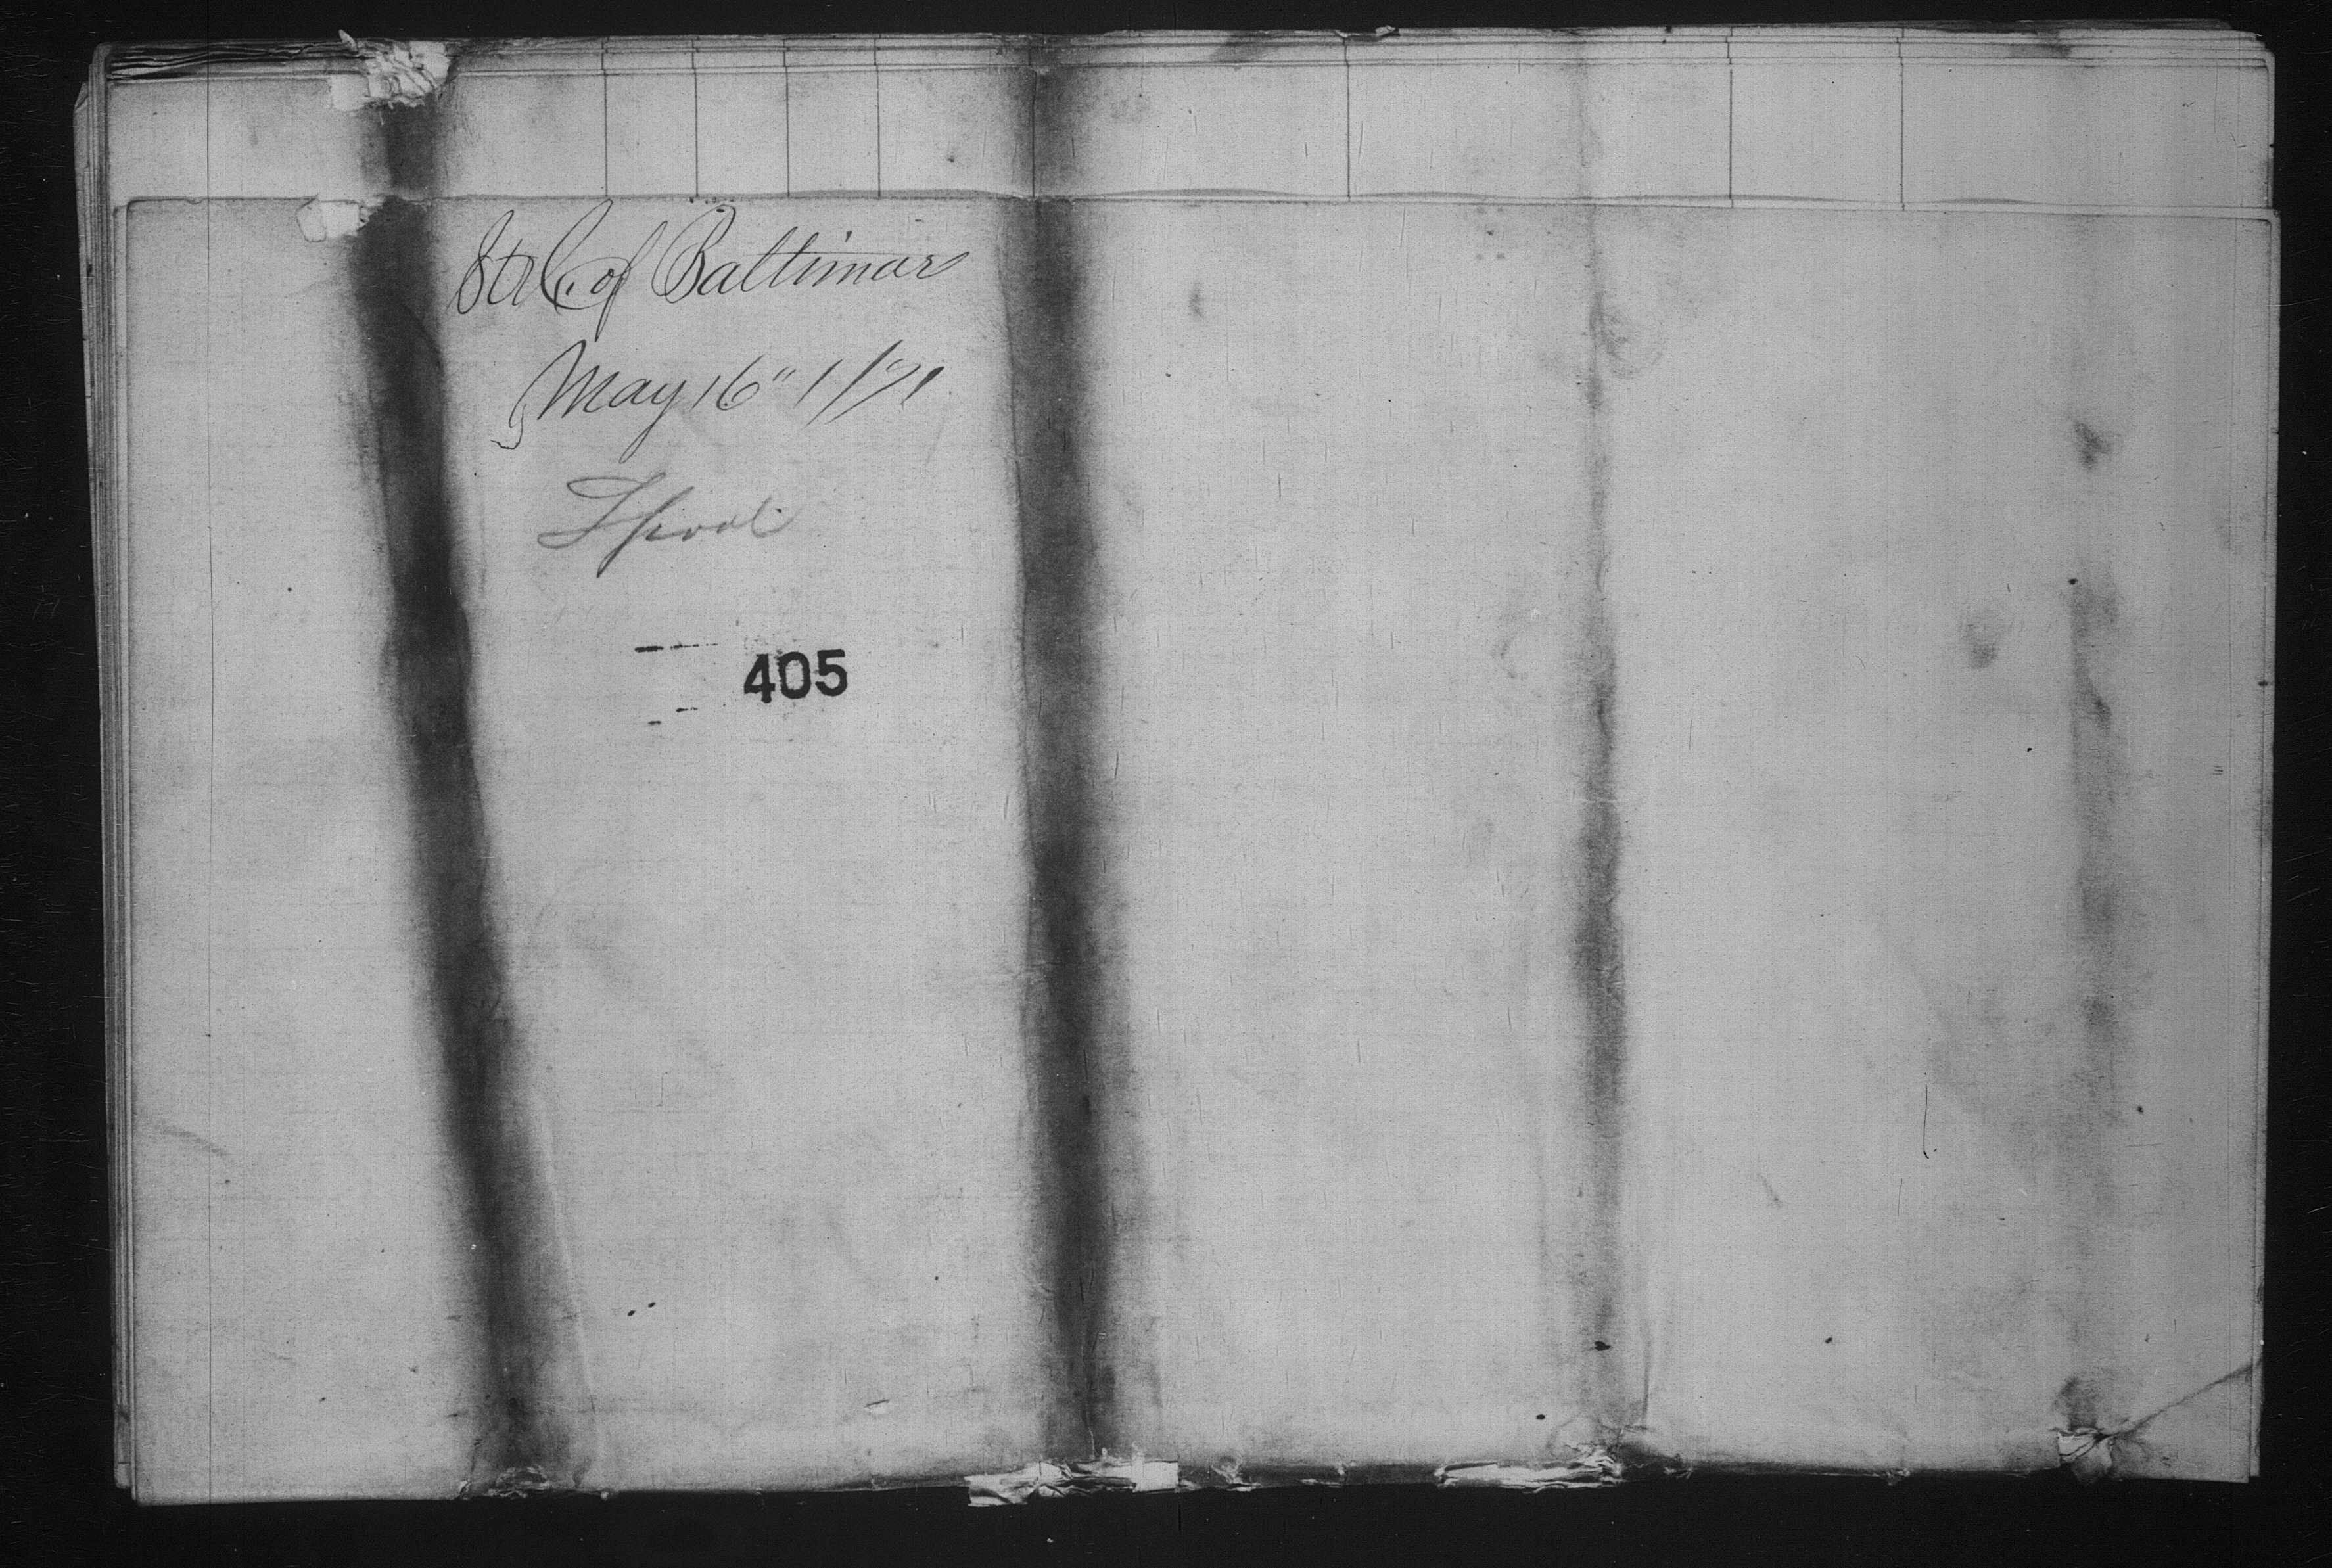 Str C. of Baltimore
May 16" 1871
Lpool
405